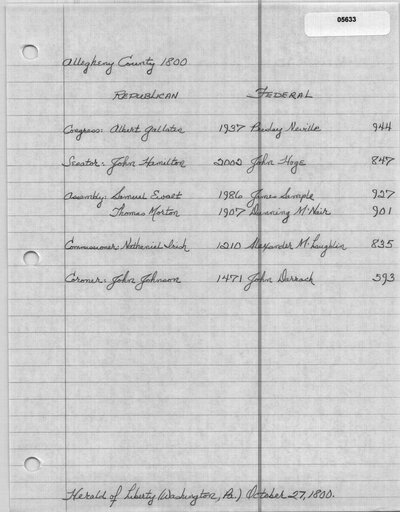 05633
Allegheny County 1800
REPUBLICAN FEDERAL
Congress: Albert Gallatin 1937 Presley Neville 944
Senator: John Hamilton 2002 John Hoge 847
Assembly: Samuel Ewalt 1986 James Sample 927
Thomas Morton 1907 Dunning McNair 901
Commissioner: Nathaniel Irish 1210 Alexander McLaughlin 835
Coroner: John Johnson 1471 John Darrach 593
Herald of Liberty (Washington, Pa.) October 27, 1800.